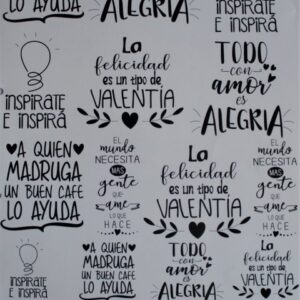 LO AYUDA
ALEGRIA
INSPIRATE
E INSPIRÁ
INSPIRATE
E INSPIRÁ
La
felicidad
es un tipo de
VALENTÍA
TODO
con
amor
es
ALEGRIA
A QUIEN
MADRUGA
UN BUEN CAFE
LO AYUDA
EL
mundo
NECESITA
MAS
gente
que
ame
LO QUE
HACE
La
felicidad
es un tipo de
VALENTÍA
EL
mundo
NECESITA
MAS
gente
que
ame
LO QUE
HACE
INSPIRATE
E INSPIRÁ
A QUIEN
MADRUGA
UN BUEN CAFE
LO AYUDA
TODO
con
amor
es
ALEGRIA
La
felicidad
es un tipo de
VALENTÍA